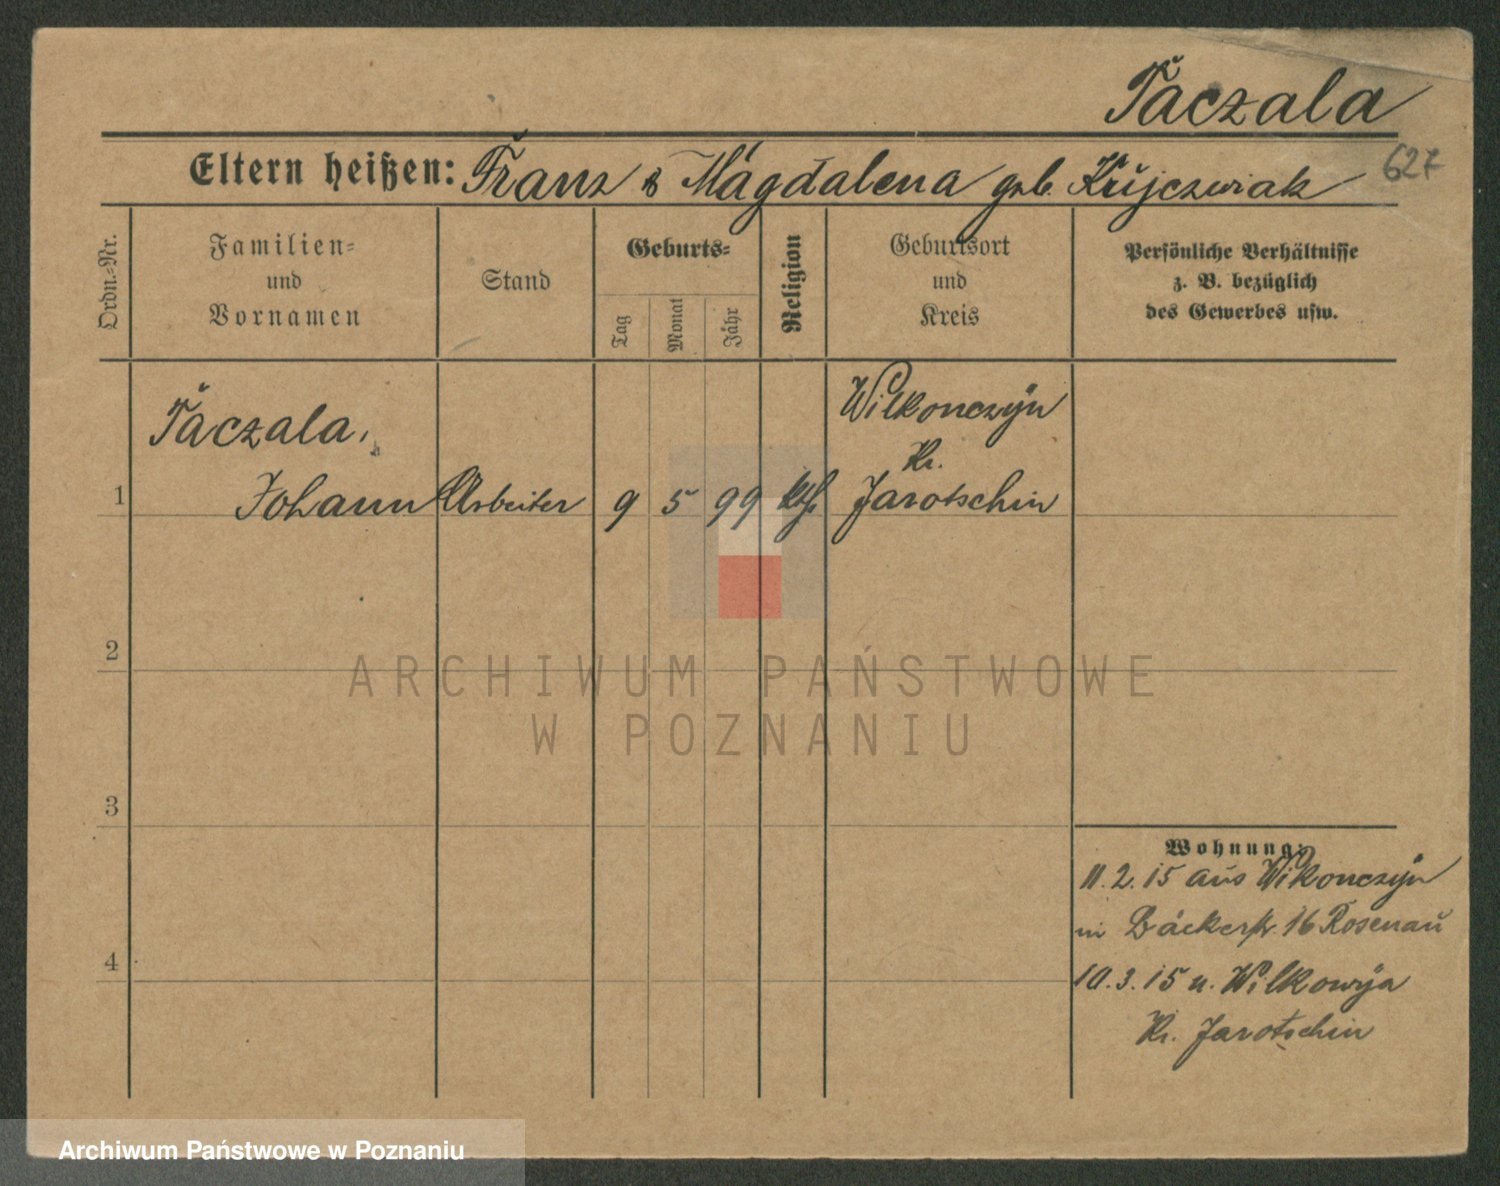 Taczala
Eltern heißen: Franz & Magdalena geb. Kujczwiak
627
Ordn.-Nr.
Familien-
und
Vornamen
Stand
Geburts-
Tag
Monat
Jahr
Religion
Geburtsort
und
Kreis
Persönliche Verhältnisse
z. B. bezüglich
des Gewerbes usw.
Taczala,
Wilkonczyn
Kr.
1 Johann Arbeiter 9 5 99 kth Jarotschin
2
ARCHIWUM PAŃSTWOWE
W POZNANIU
3
Wohnung:
11. 2. 15 aus Wikonczyn
in Bäckerstr. 16 Rosenau
4
10. 3. 15 n. Wilkowya
Kr. Jarotschin
Archiwum Państwowe w Poznaniu